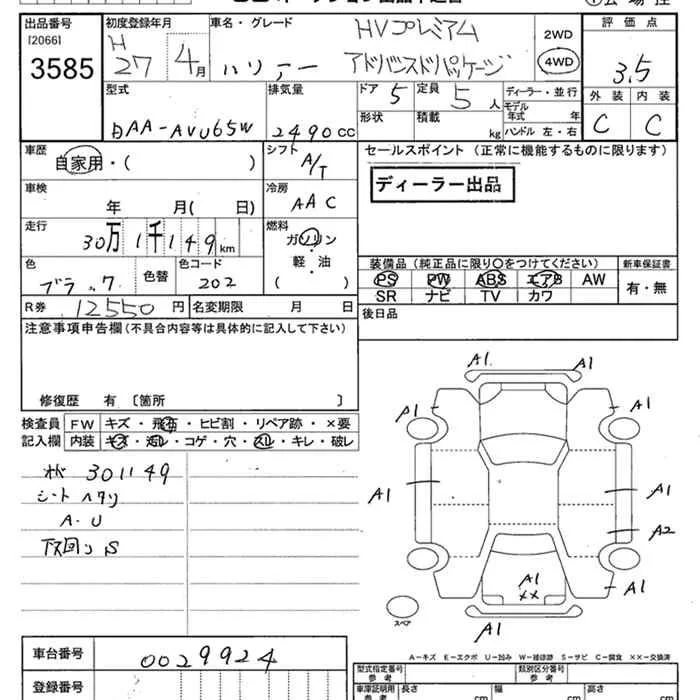 出品番号 初度登録年月 車名・グレード HVプレミアム 2WD 評価点
[2066] H
3585 27 4月 ハリアー アドバンスドパッケージ 4WD 3.5
型式 排気量 ドア 5 定員 5人 ディーラー・並行 外装 内装
モデル年式 年
DAA-AVU65W 2490cc 形状 積載 kg ハンドル 左・右 C C
車歴 シフト セールスポイント (正常に機能するものに限ります)
自家用・( ) A/T
ディーラー出品
車検 冷房
年 月( 日) AAC
走行 燃料
30万1千149km ガソリン
・
軽・油
( )
装備品 (純正品に限り○をつけてください) 新車保証書
色 色替 色コード
ブラック 202
PS PW ABS エアB AW 有・無
SR ナビ TV カワ
R券 12550円 名変期限 月 日 後日品
注意事項申告欄 (不具合内容等は具体的に記入して下さい)
修復歴 有 〔箇所 〕
検査員 FW キズ・飛石・ヒビ割・リペア跡・×要
記入欄 内装 キズ・汚レ・コゲ・穴・スレ・キレ・破レ
301149
シートヘタリ
A・U
下回りS
A1 A1
A1 A1
A1 A1
A2
A1 ××
A1
A1
スペア
A-キズ E-エクボ U-凹み W-補修跡 S-サビ C-腐食 ××-交換済
車台番号 0029924
登録番号
型式指定番号 参考 類別区分番号 参考
車庫証明用 参考 長さ cm 幅 cm 高さ cm